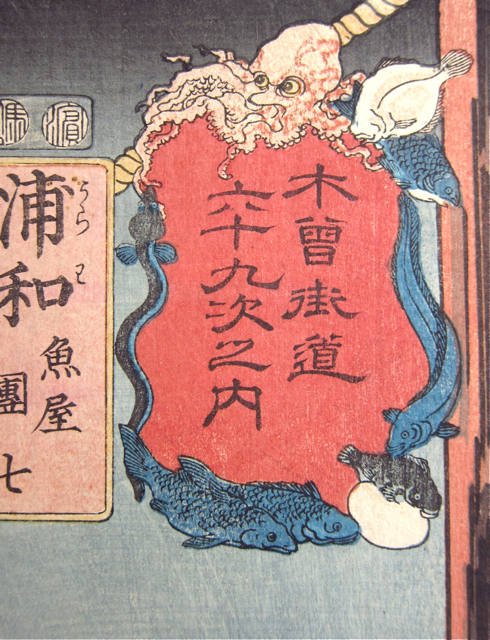 木曽街道
六十九次之内
浦和
うらわ
魚屋
團七